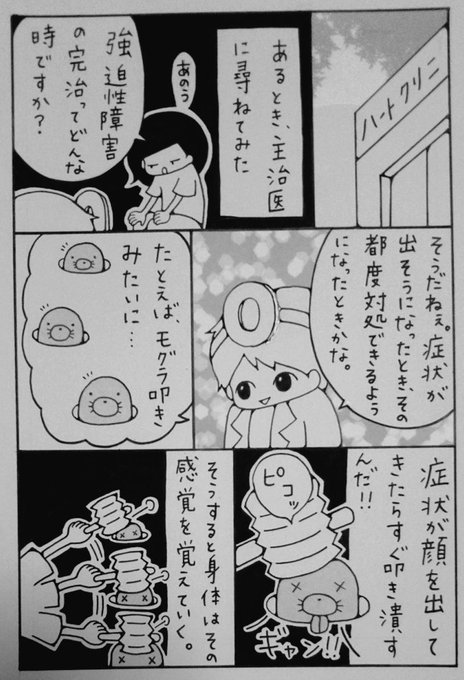 ハートクリニ
あるとき、主治医
に尋ねてみた
あのう
強迫性障害
の完治ってどんな
時ですか?
そうだねぇ。症状が
出そうになったとき、その
都度対処できるよう
になったときかな。
たとえば、モグラ叩き
みたいに…
症状が顔を出して
きたらすぐ叩き潰す
んだ!!
ピコッ
ギャン!!
そうすると身体はその
感覚を覚えていく。